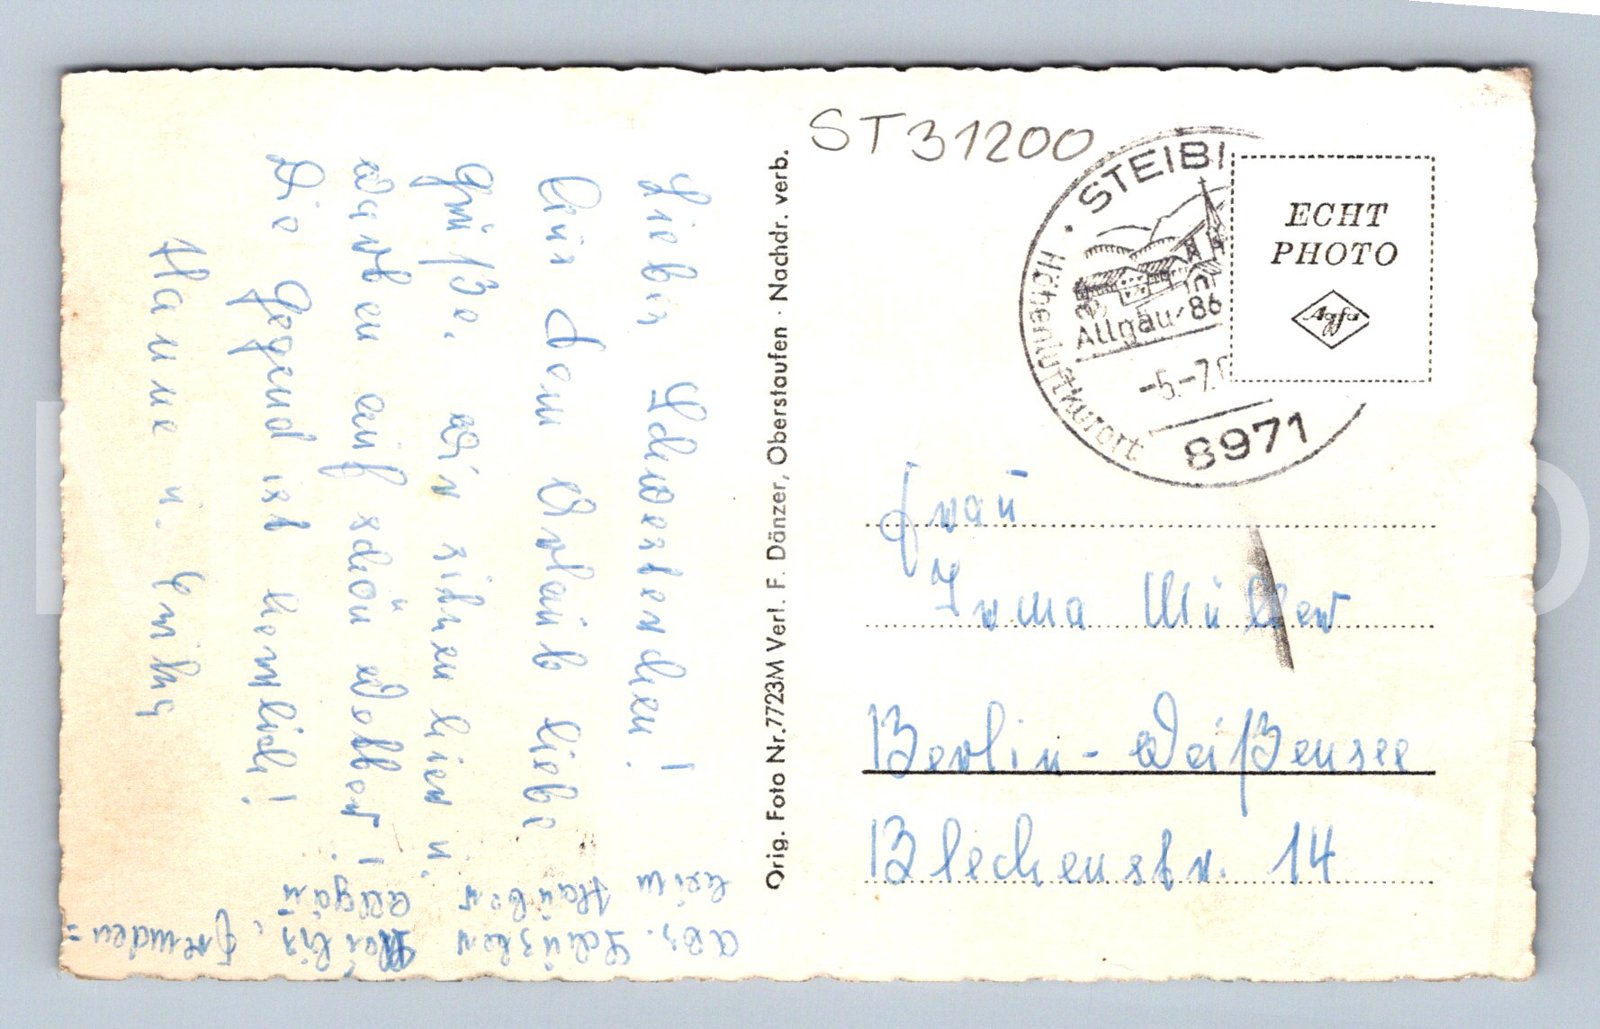 ST31200
STEIBI
Höhenluftkurort
Allgäu·86
-5.-7.
8971
ECHT
PHOTO
Agfa
Frau
Irma Müller
Berlin-Weißensee
Blechenstr. 14
Orig. Foto Nr. 7723M Verl. F. Dänzer, Oberstaufen · Nachdr. verb.
Schwesterchen!
Aus dem Urlaub liebe
Grüße. Wir sitzen hier u.
warten auf schön Wetter!
Die Gegend ist herrlich!
Hanne u.
Abs. Schuster
Allgäu